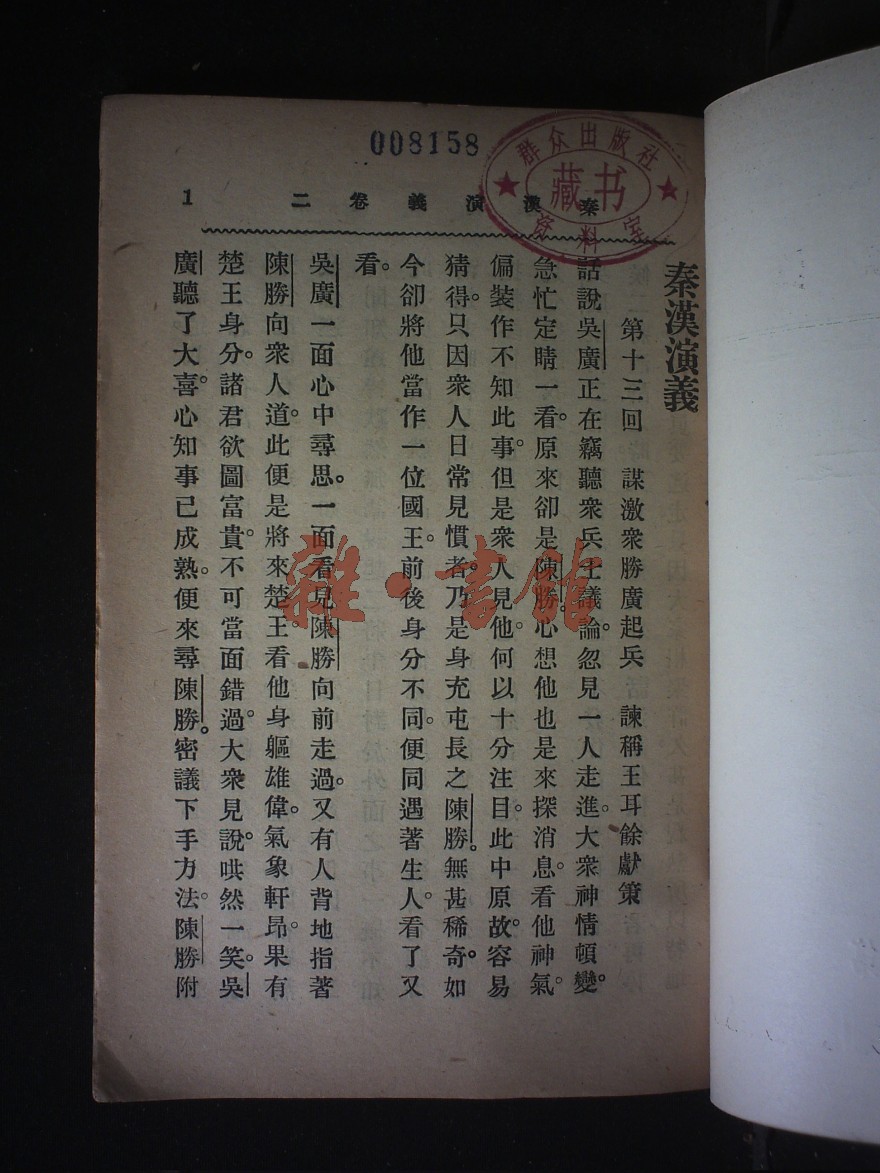 008158
群众出版社
藏书
资料室
秦漢演義卷二
1
秦漢演義
第十三回 謀激衆勝廣起兵 諫稱王耳餘獻策
話說吳廣正在竊聽衆兵士議論。忽見一人走進。大衆神情頓變。
急忙定睛一看。原來卻是陳勝。心想他也是來探消息。看他神氣。
偏裝作不知此事。但是衆人見他。何以十分注目。此中原故。容易
猜得。只因衆人日常見慣者。乃是身充屯長之陳勝。無甚稀奇。如
今卻將他當作一位國王。前後身分不同。便同遇著生人。看了又
看。
吳廣一面心中尋思。一面看見陳勝向前走過。又有人背地指著
陳勝向衆人道。此便是將來楚王。看他身軀雄偉。氣象軒昂。果有
楚王身分。諸君欲圖富貴。不可當面錯過。大衆見說。哄然一笑。吳
廣聽了大喜。心知事已成熟。便來尋陳勝。密議下手方法。陳勝附
雜·書館